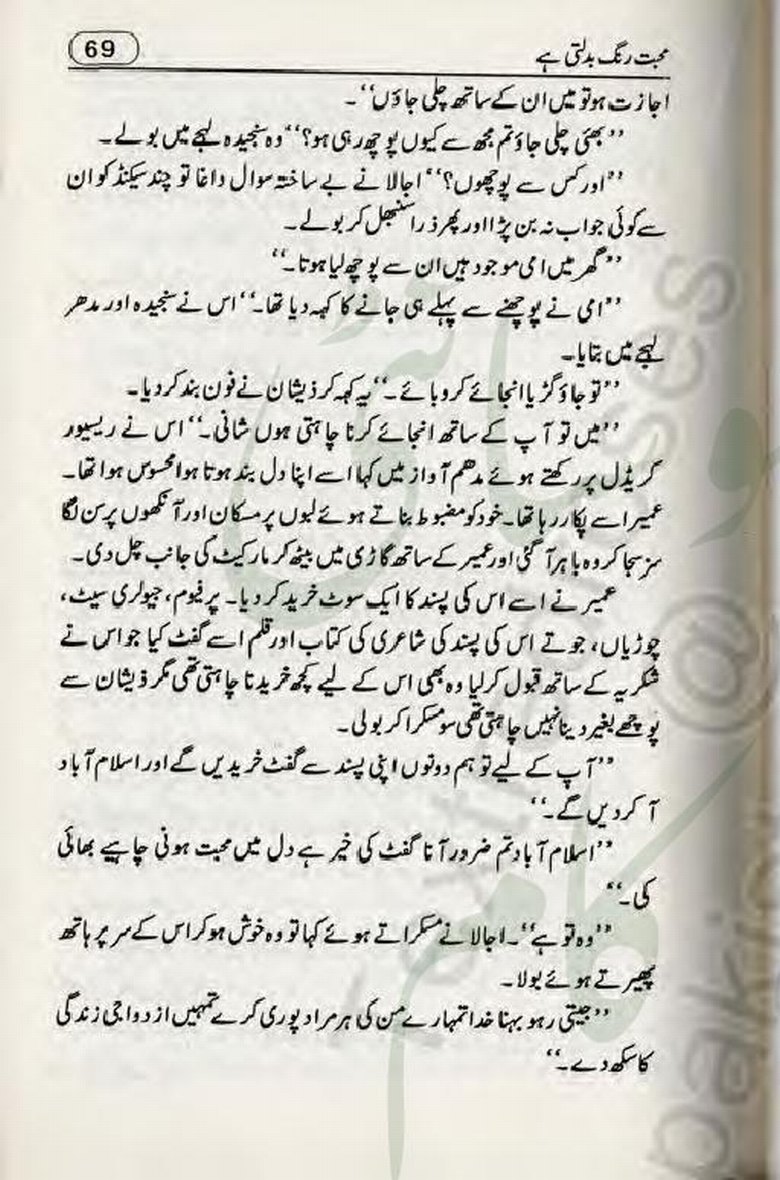 69
محبت رنگ بدلتی ہے
اجازت ہو تو میں ان کے ساتھ چلی جاؤں‘‘۔
’’بھئی چلی جاؤ تم مجھ سے کیوں پوچھ رہی ہو؟‘‘ وہ سنجیدہ لہجے میں بولے۔
’’اور کس سے پوچھوں؟‘‘ اجالا نے بے ساختہ سوال داغا تو چند سیکنڈ کو ان
سے کوئی جواب نہ بن پڑا اور پھر ذرا سنبھل کر بولے۔
’’گھر میں امی موجود ہیں ان سے پوچھ لیا ہوتا۔‘‘
’’امی نے پوچھنے سے پہلے ہی جانے کا کہہ دیا تھا۔‘‘ اس نے سنجیدہ اور مدھر
لہجے میں بتایا۔
’’تو جاؤ گڑیا انجائے کرو بائے۔‘‘ یہ کہہ کر ذیشان نے فون بند کر دیا۔
’’میں تو آپ کے ساتھ انجائے کرنا چاہتی ہوں شانی۔‘‘ اس نے ریسیور
کریڈل پر رکھتے ہوئے مدھم آواز میں کہا اسے اپنا دل بند ہوتا ہوا محسوس ہوا تھا۔
عمیر اسے پکار رہا تھا۔ خود کو مضبوط بناتے ہوئے لبوں پر مسکان اور آنکھوں پر سن گلا
سز سجا کر وہ باہر آ گئی اور عمیر کے ساتھ گاڑی میں بیٹھ کر مارکیٹ کی جانب چل دی۔
عمیر نے اسے اس کی پسند کا ایک سوٹ خرید کر دیا۔ پرفیوم، جیولری سیٹ،
چوڑیاں، جوتے اس کی پسند کی شاعری کی کتاب اور قلم اسے گفٹ کیا جو اس نے
شکریہ کے ساتھ قبول کر لیا وہ بھی اس کے لیے کچھ خریدنا چاہتی تھی مگر ذیشان سے
پوچھے بغیر دینا نہیں چاہتی تھی سو مسکرا کر بولی۔
’’آپ کے لیے تو ہم دونوں اپنی پسند سے گفٹ خریدیں گے اور اسلام آباد
آ کر دیں گے۔‘‘
’’اسلام آباد تم ضرور آنا گفٹ کی خیر ہے دل میں محبت ہونی چاہیے بھائی
کی۔‘‘
’’وہ تو ہے‘‘۔ اجالا نے مسکراتے ہوئے کہا تو وہ خوش ہو کر اس کے سر پر ہاتھ
پھیرتے ہوئے بولا۔
’’جیتی رہو بہنا خدا تمہارے من کی ہر مراد پوری کرے تمہیں ازدواجی زندگی
کا سکھ دے۔‘‘